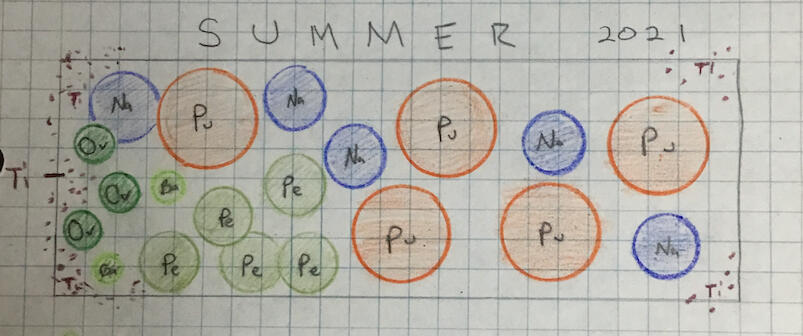 SUMMER 2021
Ti
Na
Pu
Na
Ti
Or
Na
Pu
Na
Pu
Ti
Or
Ba
Pe
Or
Pe
Pu
Pu
Na
Ba
Pe
Pe
Pe
Ti
Ti